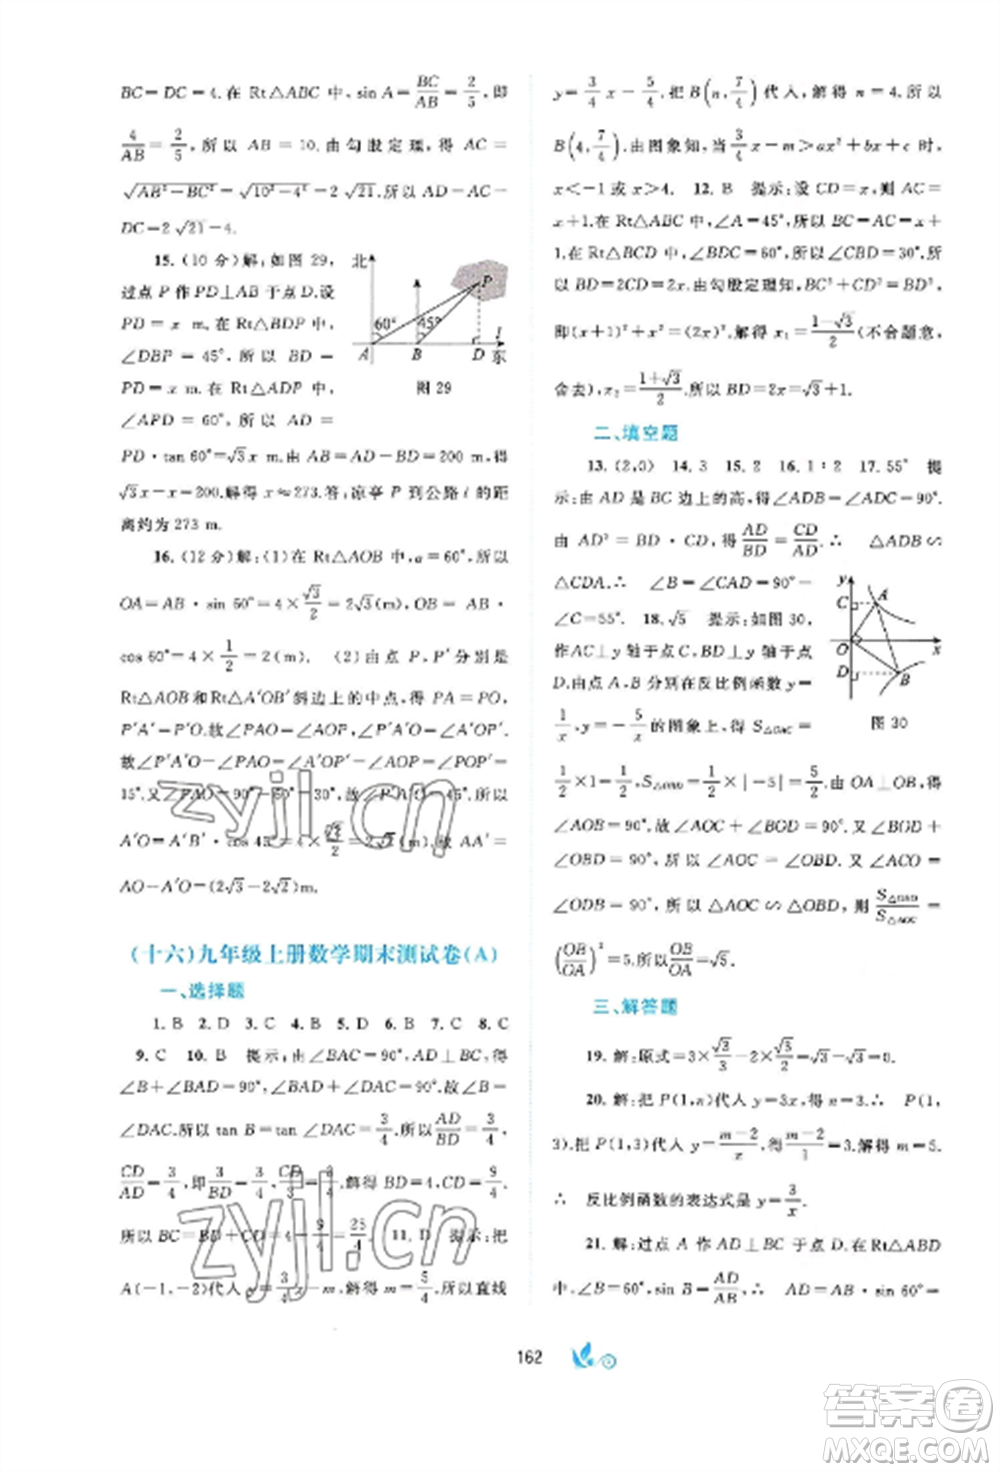 BC=DC=4.在 Rt△ABC 中,sin A=BC/AB=2/5,即
4/AB=2/5,所以 AB=10.由勾股定理,得 AC=
√(AB²-BC²)=√(10²-4²)=2√21.所以 AD=AC-
DC=2√21-4.
15.(10分)解:如图 29,
过点 P 作 PD⊥AB 于点 D.设
PD=x m.在 Rt△BDP 中,
∠DBP=45°,所以 BD=
PD=x m.在 Rt△ADP 中,
∠APD=60°,所以 AD=
北
P
60°
45°
A
B
D
l
东
图 29
PD·tan 60°=√3x.由 AB=200,得 AD-BD=200,即
√3x-x=200.解得 x≈273.故凉亭 P 到公路 l 的距
离约为 273 m.
16.(12分)解:(1)在 Rt△AOB 中,α=60°,所以
OA=AB·sin 60°=4×√3/2=2√3(m),OB=AB·
cos 60°=4×1/2=2(m). (2)由点 P、P′分别是
Rt△AOB和Rt△A′OB′斜边上的中点,得 PA=PO,
P′A′=P′O.所以∠PAO=∠AOP,∠P′A′O=∠A′OP′.
所以∠P′A′O-∠PAO=∠A′OP′-∠AOP=∠POP′=
15°.又∠PAO=90°-60°=30°,所以∠P′A′O=45°.所以
A′O=A′B′·cos 45°=4×√2/2=2√2(m).故 AA′=
AO-A′O=(2√3-2√2)m.
(十六)九年级上册数学期末测试卷(A)
一、选择题
1. B 2. D 3. C 4. B 5. D 6. C 7. C 8. C
9. C 10. B 提示:由∠BAC=90°,AD⊥BC,得
∠B+∠BAD=90°,∠BAD+∠DAC=90°.故∠B=
∠DAC.所以 tan B=tan∠DAC=3/4.故AD/BD=3/4,
CD/AD=3/4,即3/BD=3/4,CD/3=3/4.故 BD=4,CD=9/4.
所以 BC=BD+CD=4+9/4=25/4. 11. D 提示:把
A(-1,-2)代人 y=3/4x-m,解得 m=5/4.所以直线
y=3/4x-5/4.把 B(n,7/4)代人,解得 n=4.所以
B(4,7/4).由图象知,当3/4x-m>ax²+bx+c 时,
x<-1或x>4. 12. B 提示:设 CD=x,AC=
x+1.在 Rt△ABC 中,∠A=45°,所以 BC=AC=x+
1.在 Rt△BCD 中,∠BDC=60°,所以∠CBD=30°.所
以 BD=2CD=2x.由勾股定理知,BC²+CD²=BD²,
即(x+1)²+x²=(2x)².解得 x₁=(1-√3)/2(不合题意,
舍去),x₂=(1+√3)/2.所以 BD=2x=√3+1.
二、填空题
13.(2,0) 14. 3 15. 2 16. 1∶2 17. 55° 提
示:由 AD 是 BC 边上的高,得∠ADB=∠ADC=90°.
由 AD²=BD·CD,得AD/BD=CD/AD.∴ △ADB∽
△CDA.∴ ∠B=∠CAD=90°-
∠C=55°. 18. √5 提示:如图 30,
作AC⊥y 轴于点C,BD⊥y 轴于点
D.由点 A、B 分别在反比例函数 y=
1/x,y=-5/x的图象上,得 S△OAC=
y
C
A
O
x
D
B
图 30
1/2×1=1/2,S△OBD=1/2×|-5|=5/2.由 OA⊥OB,得
∠AOB=90°.故∠AOC+∠BOD=90°.又∠BOD+
∠OBD=90°,所以∠AOC=∠OBD.又∠ACO=
∠ODB=90°,所以△AOC∽△OBD.所以S△OBD/S△AOC=
(OB/OA)²=5.所以OB/OA=√5.
三、解答题
19. 解:原式=3×√3/3-2×√3/2=√3-√3=0.
20. 解:把 P(1,n)代人 y=3x,得 n=3.∴ P(1,
3).把 P(1,3)代人 y=(m-2)/x,得(m-2)/1=3.解得 m=5.
∴ 反比例函数的表达式是 y=3/x.
21. 解:过点 A 作 AD⊥BC于点D.在Rt△ABD
中,∠B=60°,sin B=AD/AB,∴ AD=AB·sin 60°=
162
zyjl.cn
zyjl.cn
答案圈
MXQE.COM